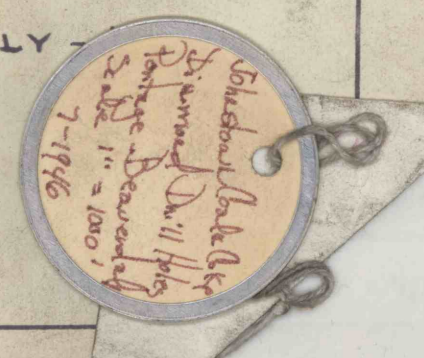 Johnstown Coal & Coke
Diamond Drill Holes
Portage - Beaverdale
Scale 1" = 1000'
7-1946
TY